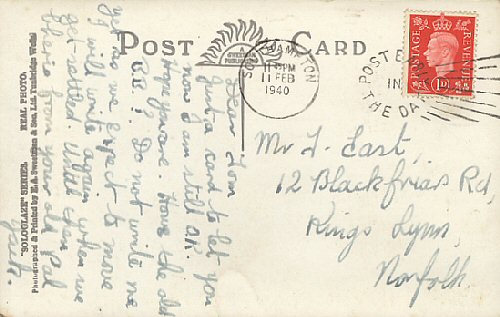 POST CARD
A
SWEETMAN
PUBLICATION
SOUTHAMPTON
PM
11 FEB
1940
POST E
IN
THE DA
POSTAGE
REVENUE
1D
Dear Tom
Just a card to let you
now I am still OK.
Hop you are. Hows the old
Do not write me
yet as we expect to move
I will write again when we
get settled. Untill then
cheerio from your old pal
Jack.
Mr T. East.,
12 Blackfriars Rd
Kings Lynn,
Norfolk.
"SOLOGLAZE" SERIES. REAL PHOTO.
Photographed & Printed by E. A. Sweetman & Son, Ltd. Tunbridge Wells